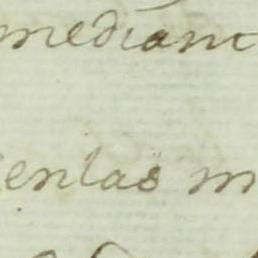 mediant
enlas m